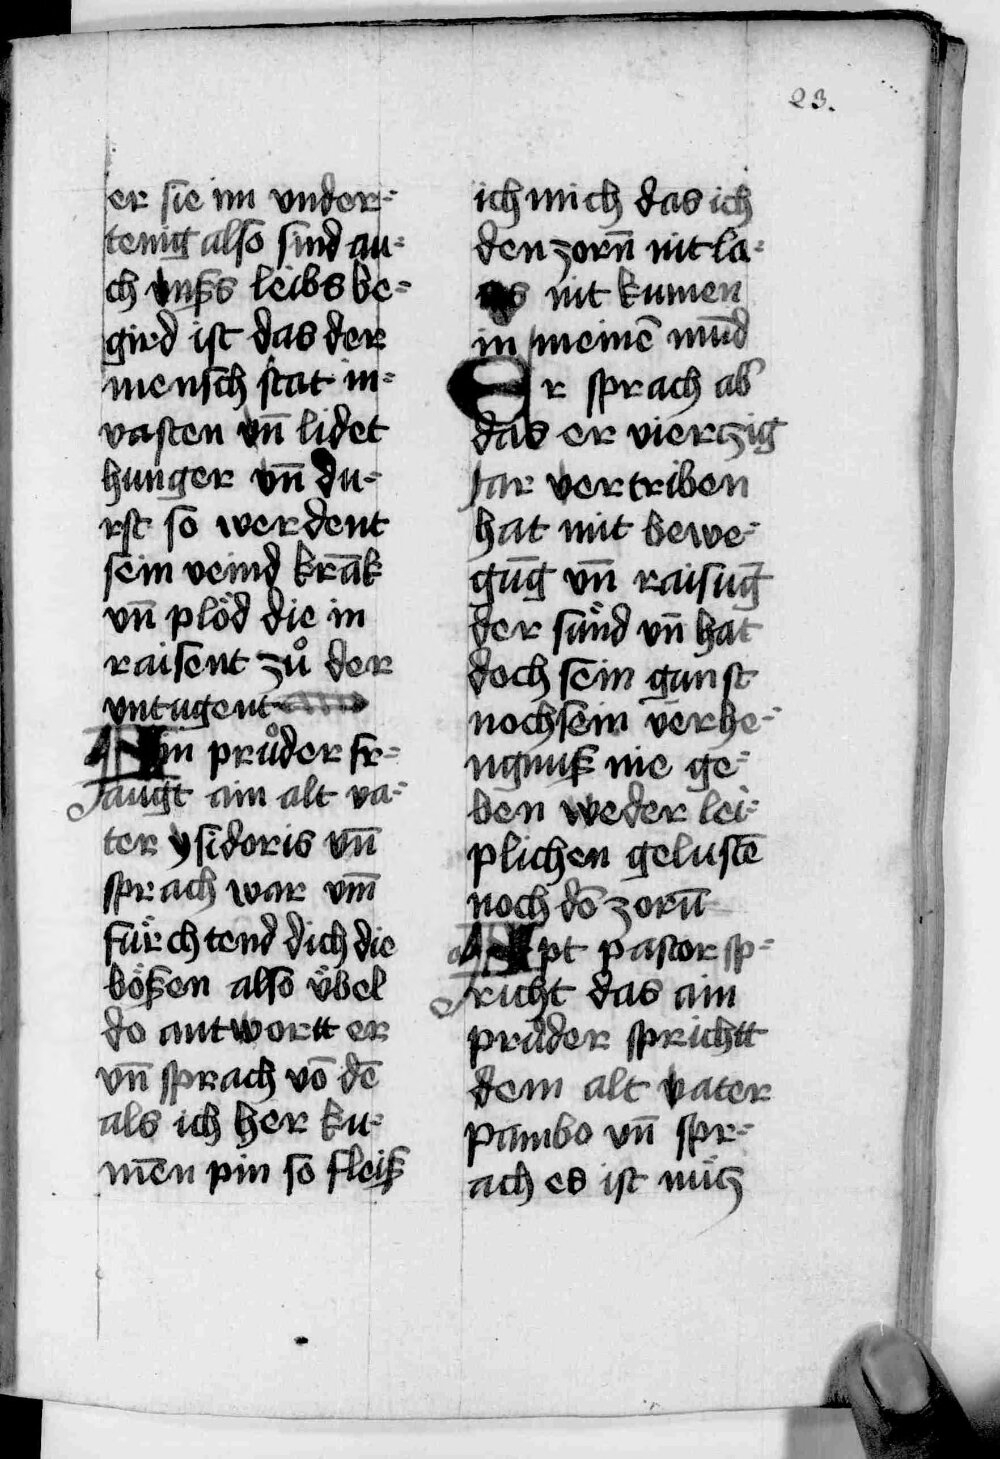 23.
er sie im vnder⸗
tenig also sind au⸗
ch vnßs leibs be⸗
gird ist das der
mensch stat in⸗
vasten vn̄ lidet
hunger vn̄ du⸗
rst so werdent
sein veind krāk
vn̄ plöd die in
raisent zů der
vntugent
Ain průder fr⸗
augt ain alt va⸗
ter ysidoris vn̄
sprach war vm̄
fürchtend dich die
bößen also übel
do antwortt er
vn̄ sprach vō dē
als ich her ku⸗
mēn pin so fleiß
ich mich das ich
den zorn̄ nit la⸗
nit kumen
in meinē mūd
Er sprach ab
das er vierczig
Jar vertriben
hat mit bewe⸗
gūg vn̄ raisūg
der sünd vn̄ hat
doch sein gunst
noch sein verhe⸗
ngnuß nie ge⸗
ben weder lei⸗
plichen gelustē
noch dē zorn̄
Apt pastor sp⸗
richt das ain
průder sprichtt
dem alt vater
pambo vn̄ spr⸗
ach es ist nücz